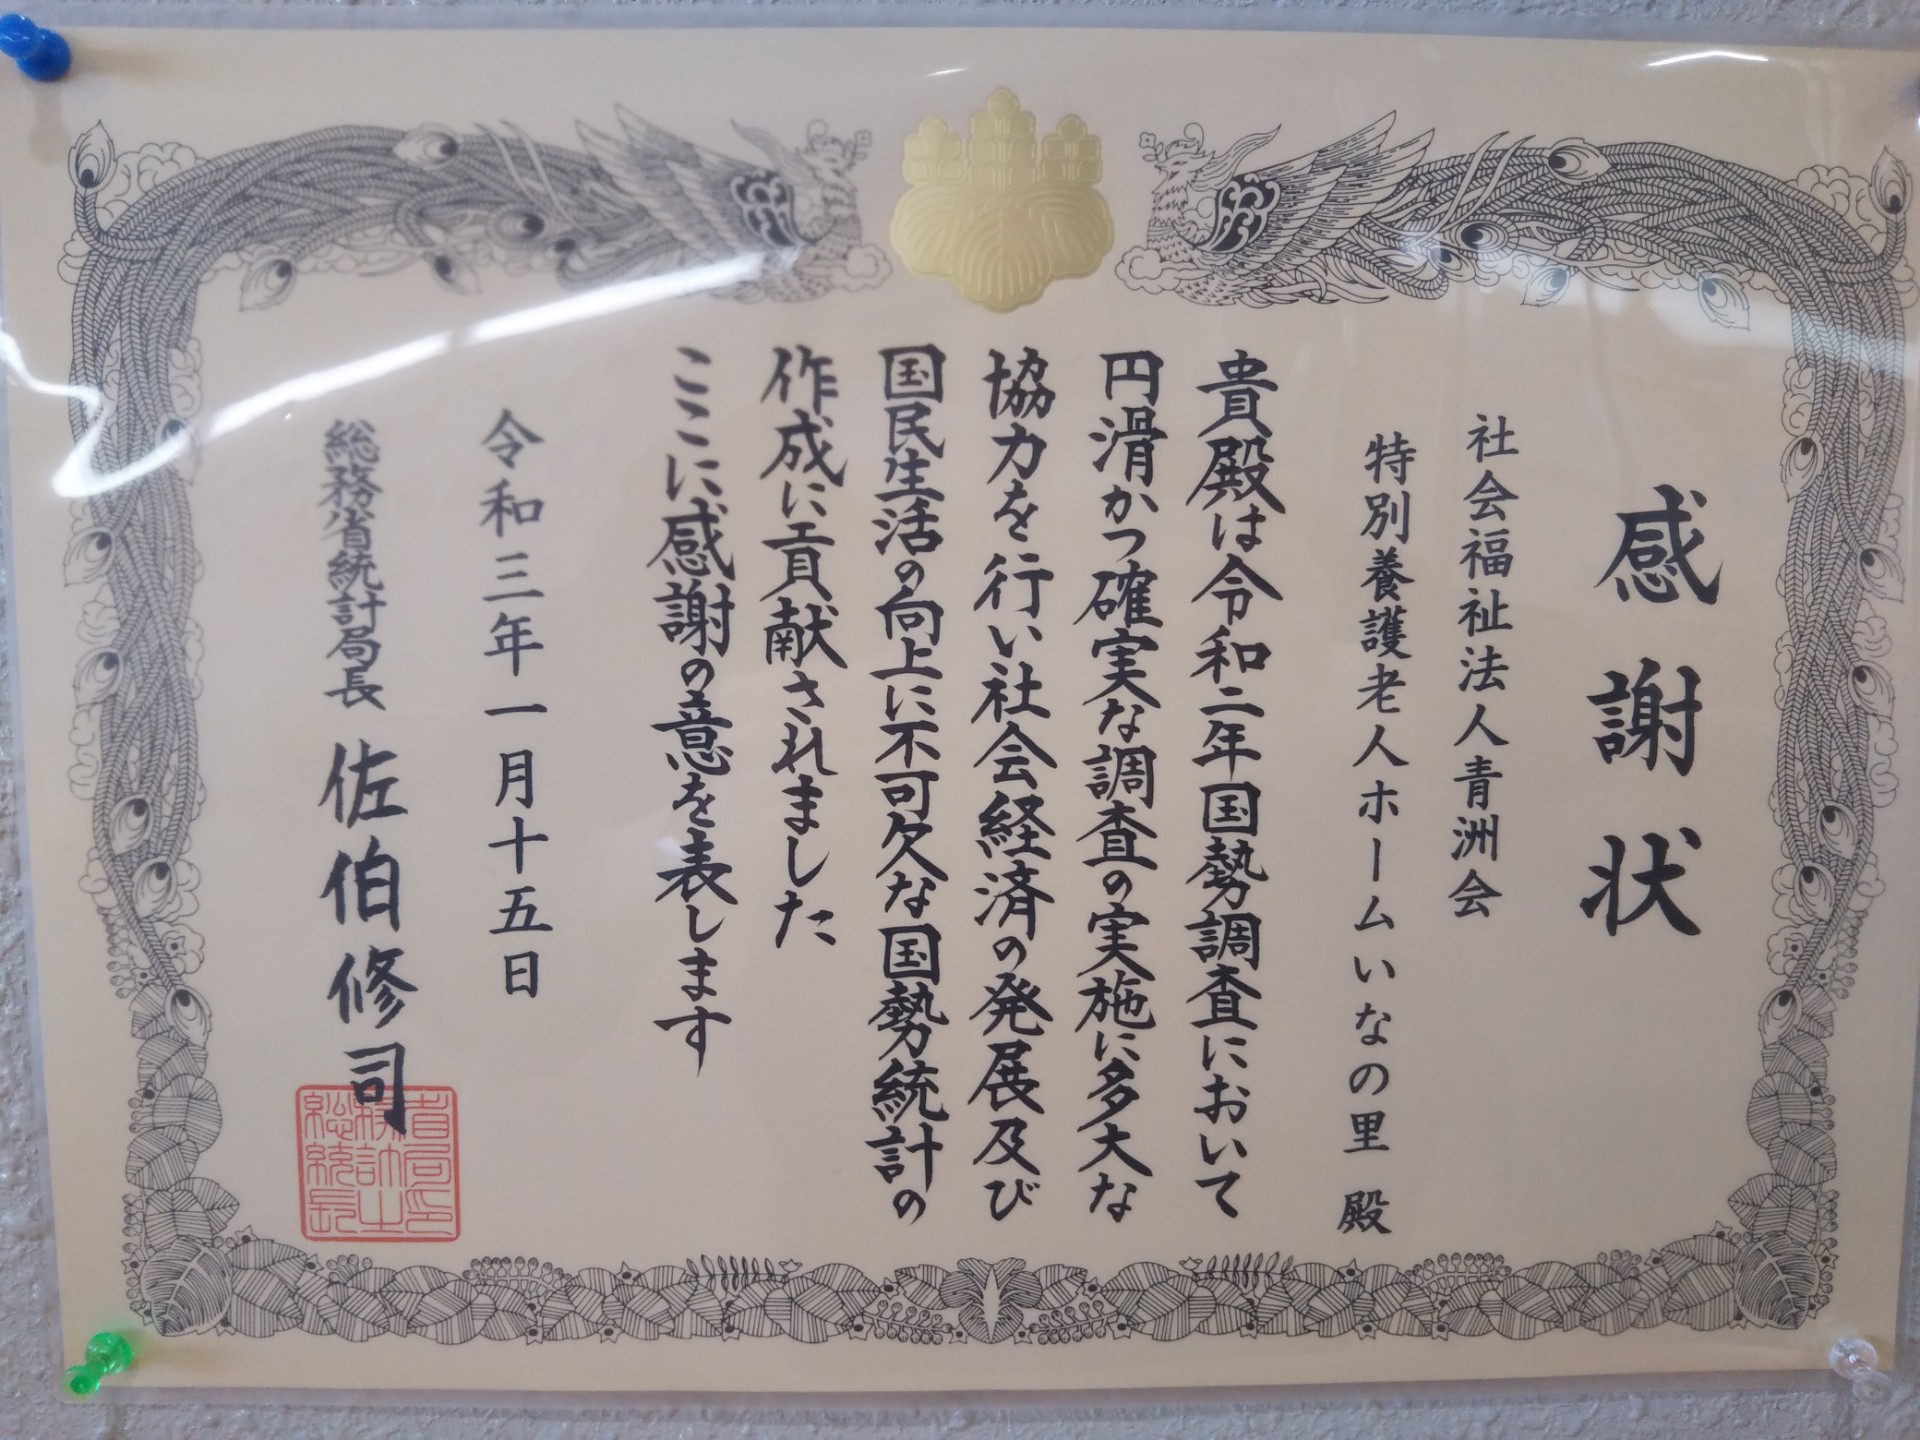 感謝状
社会福祉法人青洲会
特別養護老人ホームいなの里 殿
貴殿は令和二年国勢調査において
円滑かつ確実な調査の実施に多大な
協力を行い社会経済の発展及び
国民生活の向上に不可欠な国勢統計の
作成に貢献されました
ここに感謝の意を表します
令和三年一月十五日
総務省統計局長 佐伯修司